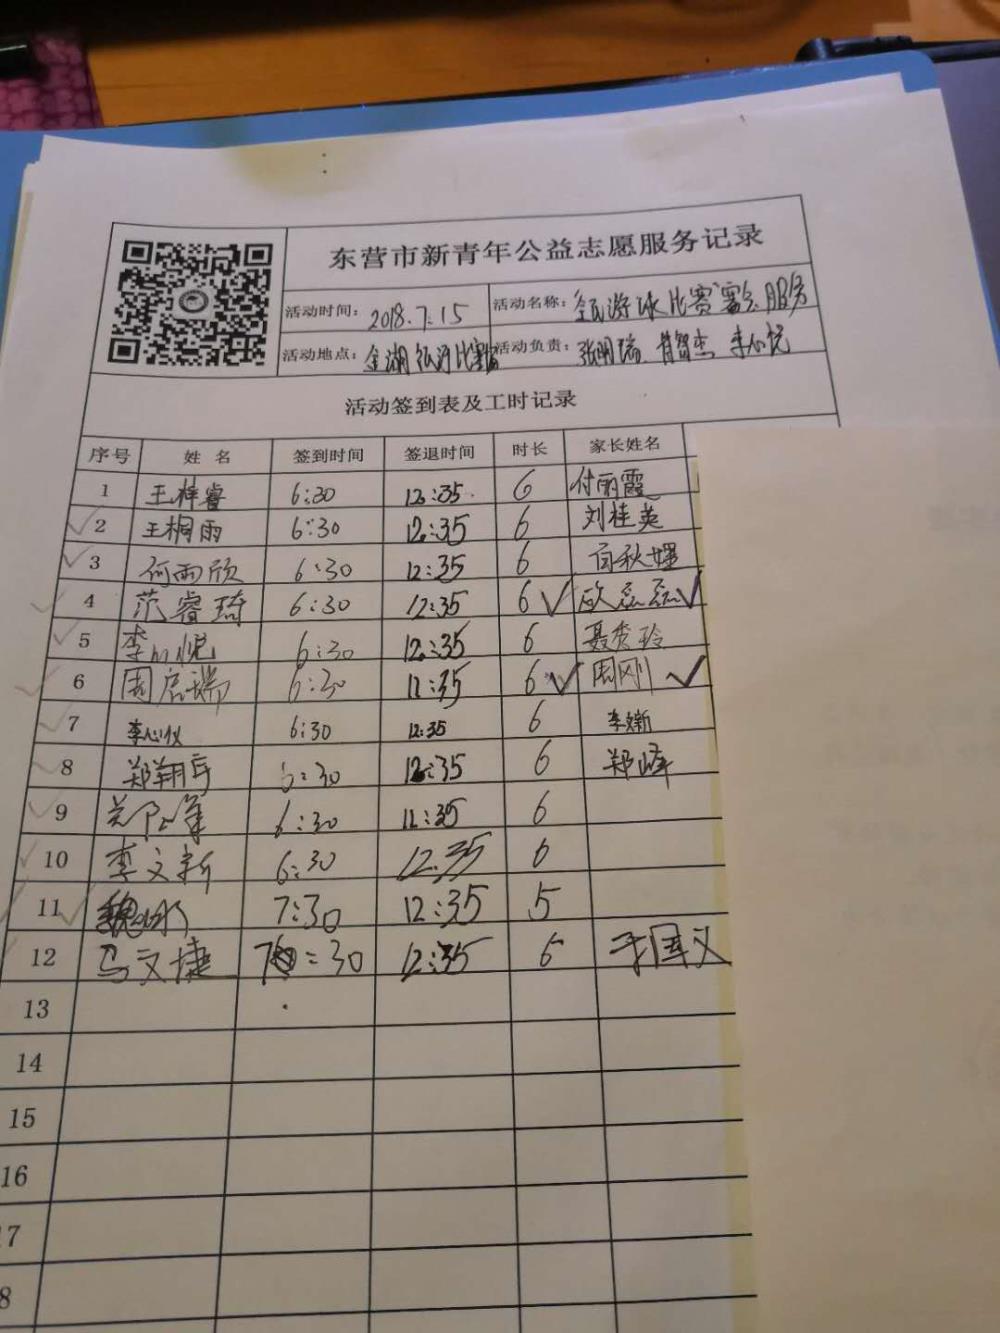 东营市新青年公益志愿服务记录
活动时间：2018.7.15 活动名称：全民游泳比赛赛会服务
活动地点：金湖银河比赛 活动负责：张明瑞 李心悦
活动签到表及工时记录
序号 姓名 签到时间 签退时间 时长 家长姓名
1 王梓睿 6:30 12:35 6 付丽霞
2 王桐雨 6:30 12:35 6 刘桂英
3 何雨欣 6:30 12:35 6
4 范睿琦 6:30 12:35 6
5 李心悦 6:30 12:35 6 聂秀玲
6 周启瑞 6:30 12:35 6 周刚
7 李心仪 6:30 12:35 6 李新
8 郑翔宇 6:30 12:35 6 郑峰
9 6:30 12:35 6
10 李文新 6:30 12.35 6
11 7:30 12:35 5
12 马文捷 7:30 12:35 6 于国义
13
14
15
16
7
8